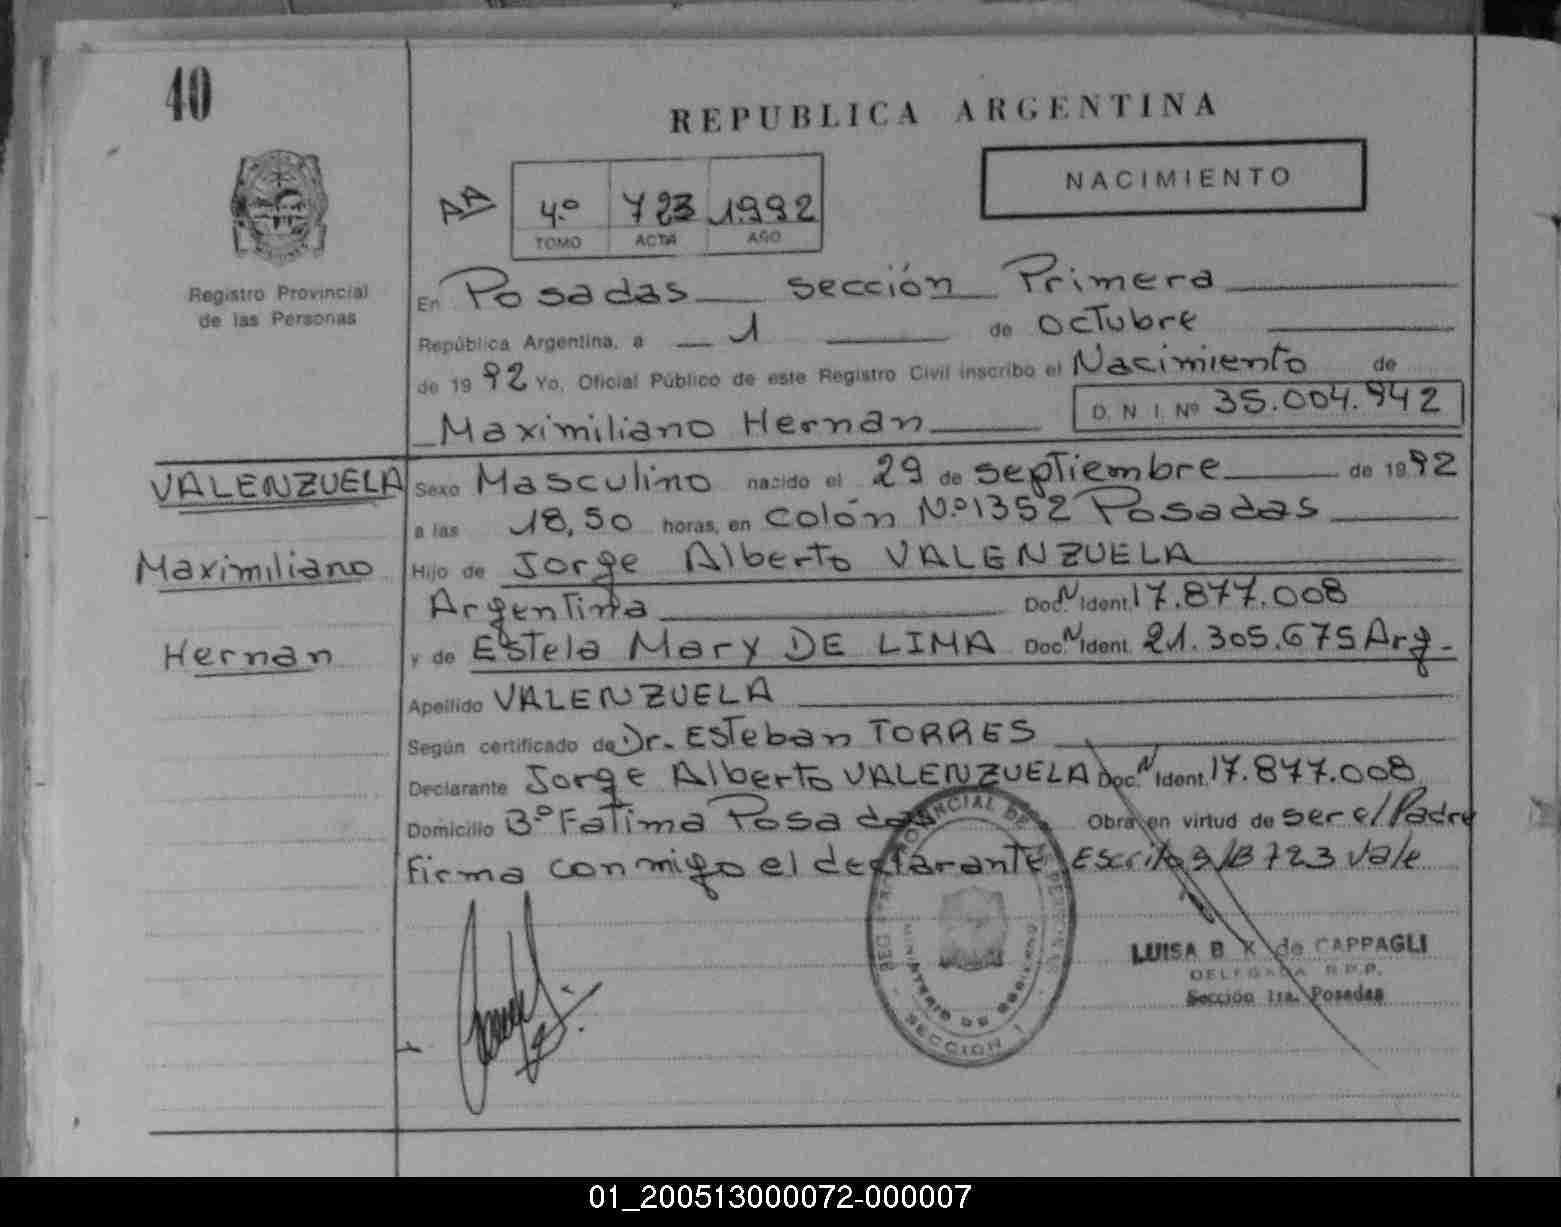 40
REPUBLICA ARGENTINA
NACIMIENTO
AA
4.º 723 1992
TOMO ACTA AÑO
Registro Provincial
de las Personas
En Posadas sección Primera
República Argentina, a 1 de octubre
de 1992 Yo, Oficial Público de este Registro Civil inscribo el Nacimiento de
Maximiliano Hernan D. N. I. Nº 35.004.942
VALENZUELA
Maximiliano
Hernan
Sexo Masculino nacido el 29 de septiembre de 1992
a las 18,50 horas, en Colón Nº 1352 Posadas
Hijo de Jorge Alberto VALENZUELA
Argentina Doc. N Ident. 17.877.008
y de Estela Mary DE LIMA Doc. N Ident. 21.305.675 Arg.
Apellido VALENZUELA
Según certificado de Dr. Esteban TORRES
Declarante Jorge Alberto VALENZUELA Doc. N Ident. 17.877.008
Domicilio Bº Fatima Posadas Obra en virtud de ser el Padre
Firma conmigo el declarante Escrito s/B 723 Vale
PROVINCIAL DE LAS PERSONAS
MINISTERIO DE GOBIERNO
SECCION 1
LUISA B K de CAPPAGLI
DELEGADA R.P.P.
Sección 1ra. Posadas
01_200513000072-000007